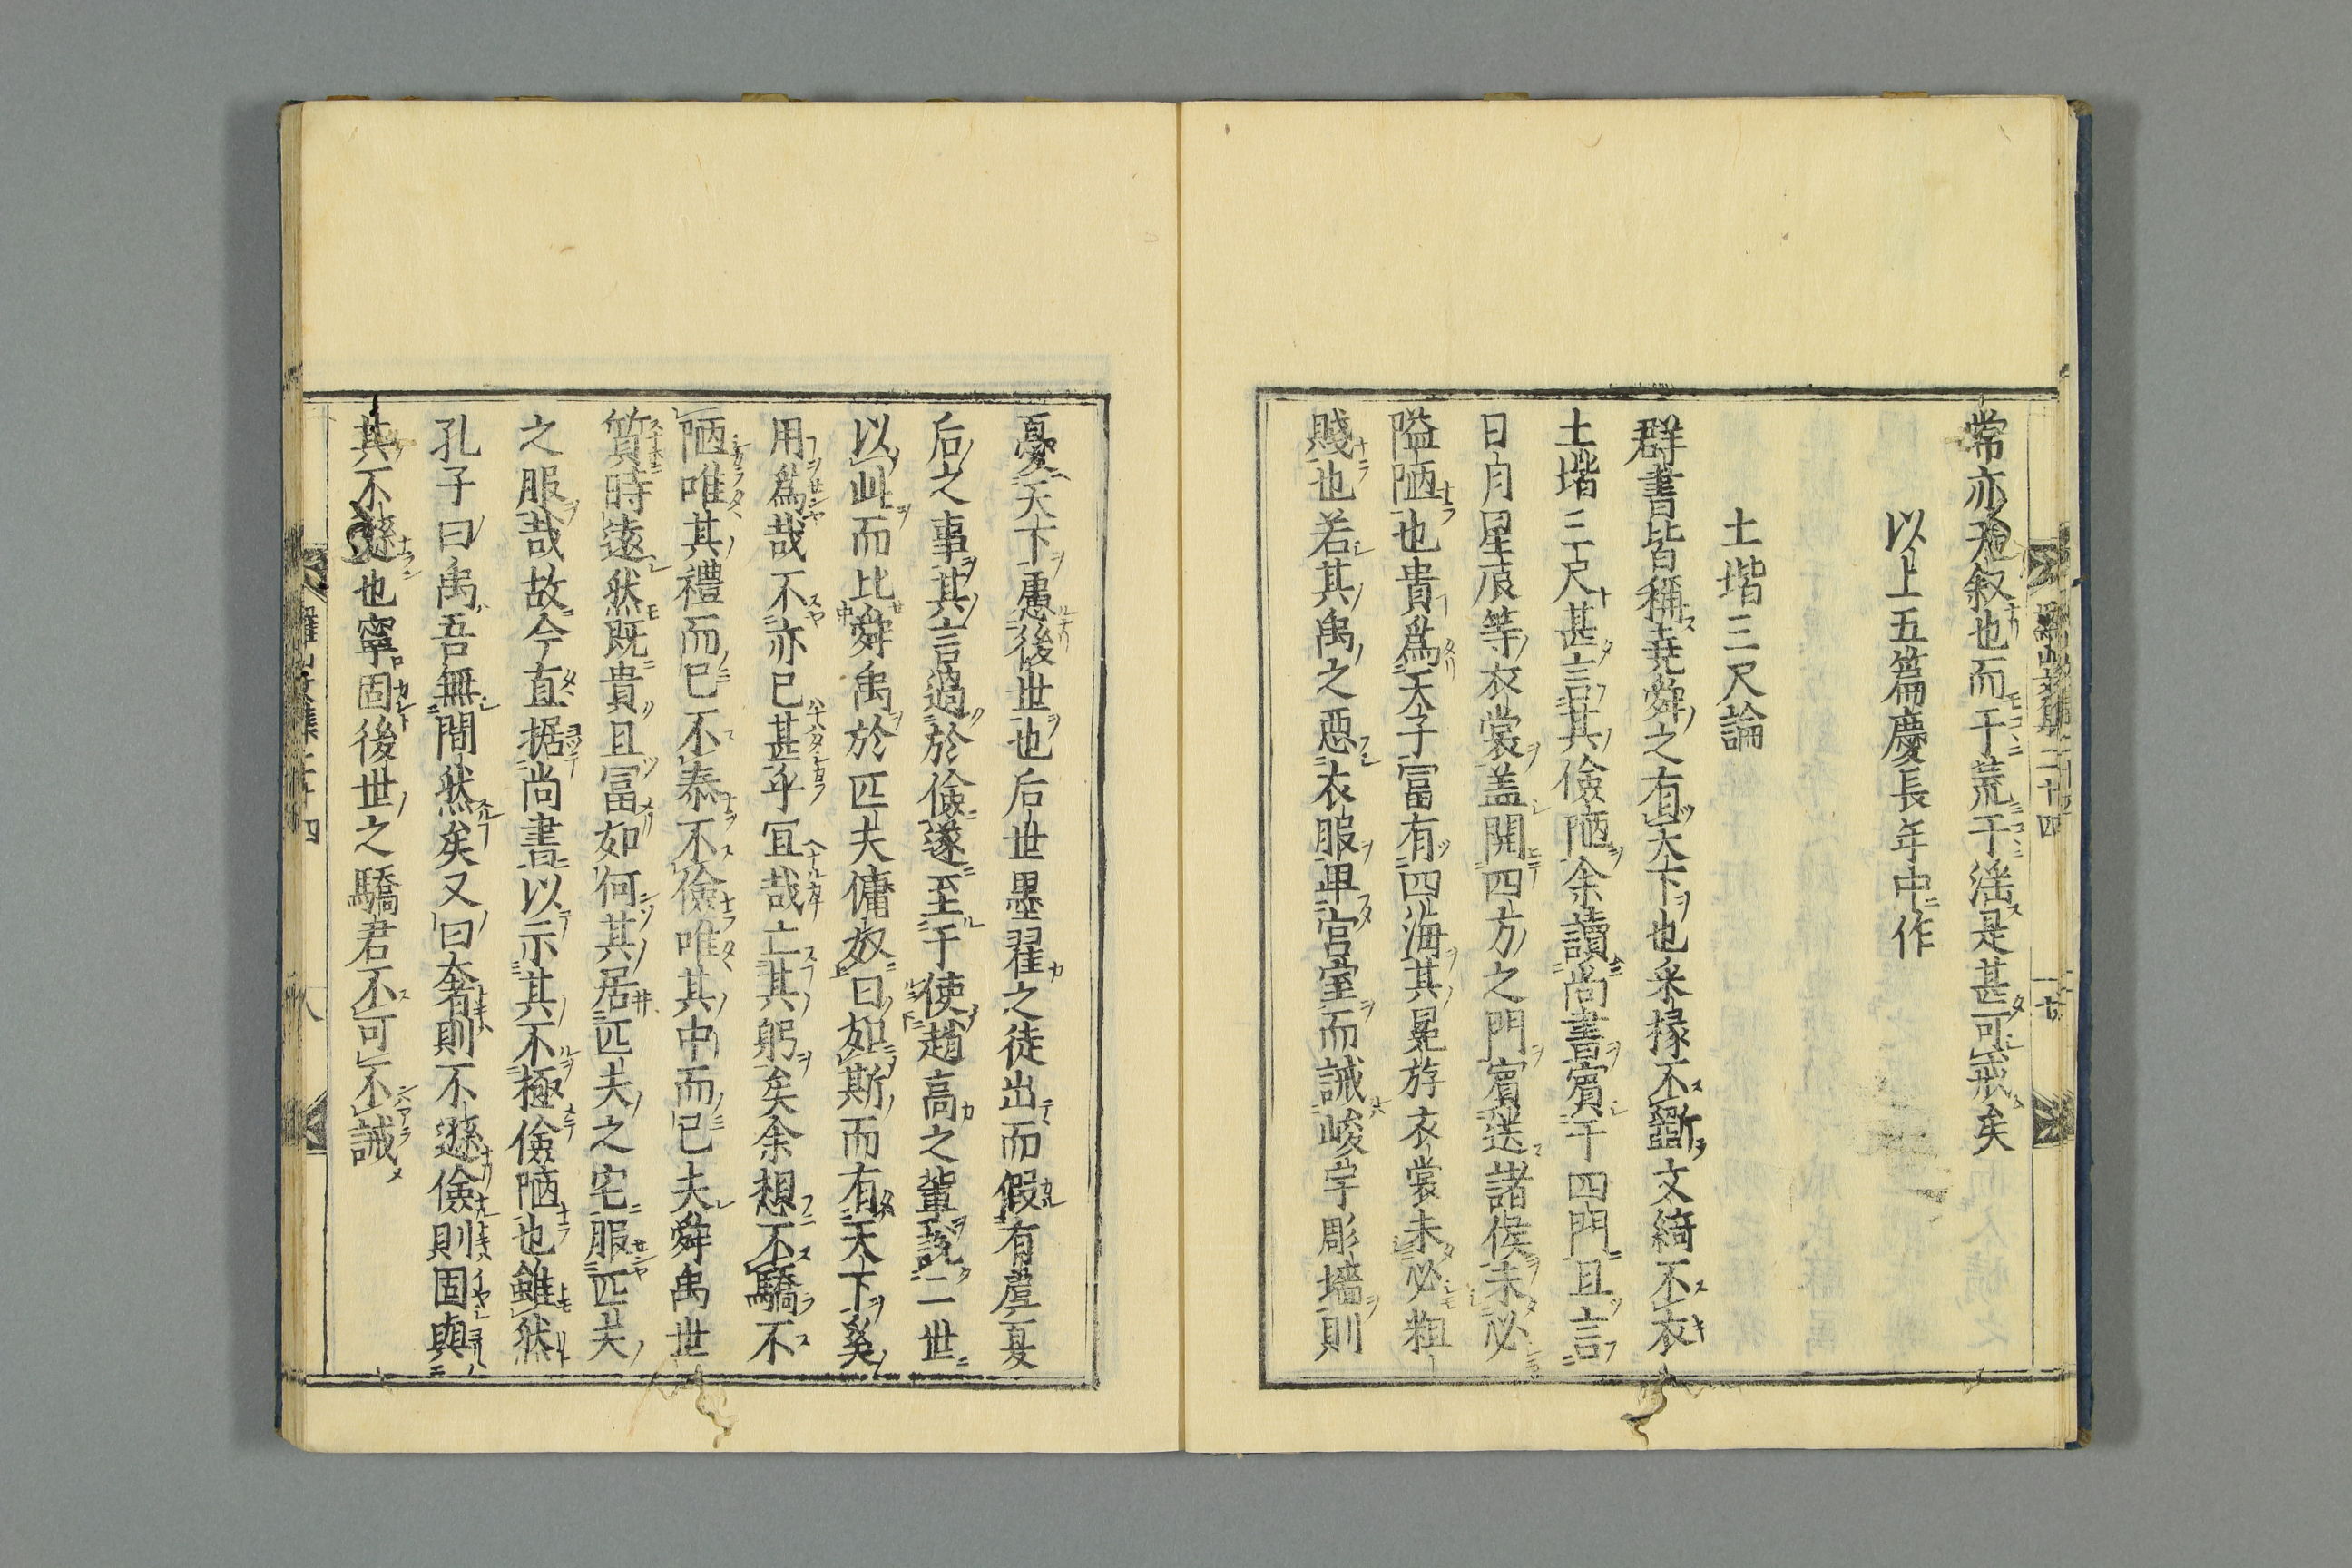 常亦天叙也而于荒于淫是甚可戒矣
以上五篇慶長年中作
土堦三尺論
群書皆稱堯舜之有天下也采椽不斵文綺不衣
土堦三尺甚言其儉陋余讀尚書賓于四門且言
日月星辰等衣裳盖開四方之門賓送諸侯未必
隘陋也貴爲天子冨有四海其冕斿衣裳未必粗
賤也若其禹之惡衣服卑宮室而誡峻宇彫墻則
憂天下慮後世也后世墨翟之徒出而假有虞夏
后之事其言過於儉遂至于使趙高之輩説二世
以此而比舜禹於匹夫傭奴曰如斯而有天下奚
用爲哉不亦已甚乎冝哉亡其躬矣余想不驕不
陋唯其禮而已不泰不儉唯其中而已夫舜禹世
質時遠然既貴且冨如何其居匹夫之宅服匹夫
之服哉故今直据尚書以示其不極儉陋也雖然
孔子曰禹吾無間然矣又曰奢則不遜儉則固與
其不遜也寧固後世之驕君不可不誡